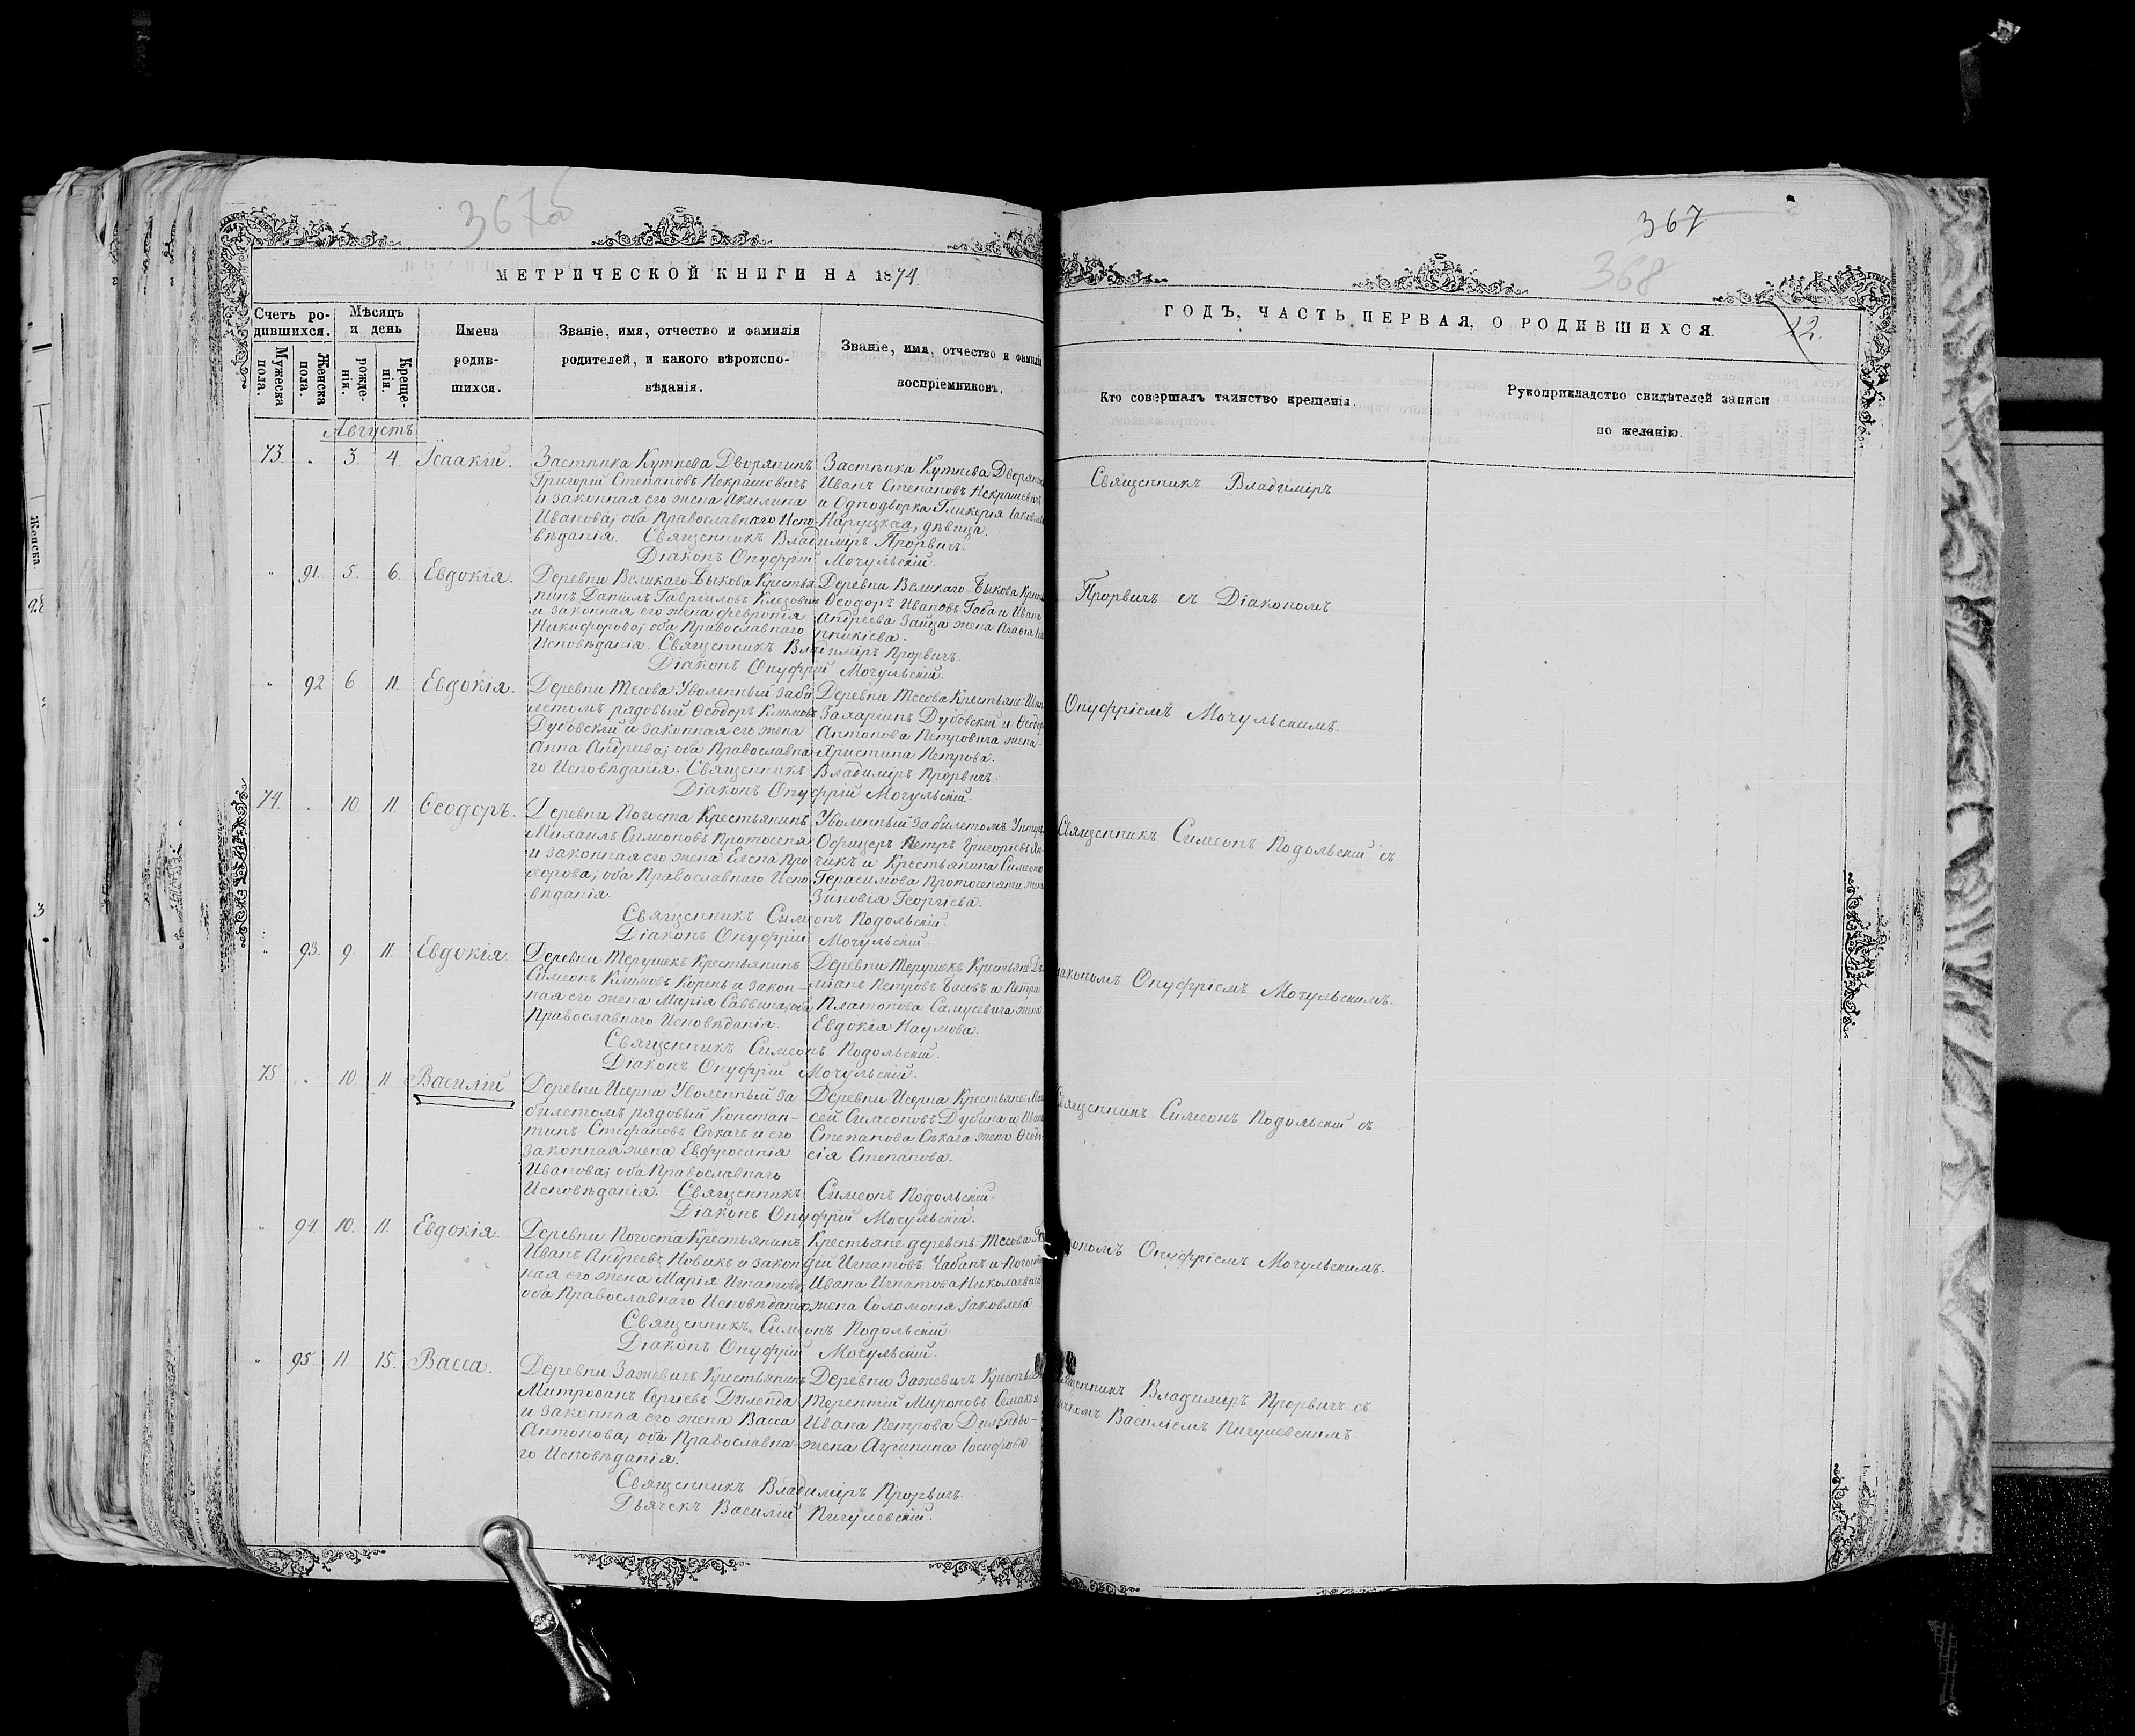 367а
МЕТРИЧЕСКОЙ КНИГИ НА 1874
Счетъ ро-
дившихся.
Мѣсяцъ
и день
Мужеска
пола.
Женска
пола.
рожде-
нія.
Креще-
нія.
Имена
родив-
шихся.
Званіе, имя, отчество и фамилія
родителей, и какого вѣроиспо-
вѣданія.
Званіе, имя, отчество и фамилія
воспріемниковъ.
Августъ
73. " 3. 4. Ісаакій.
Застѣнка Кутнева Дворянинъ
Григорій Степановъ Некрашевичъ
и законная его жена Акилина
Иванова; оба Православнаго Испо-
вѣданія. Священникъ Владиміръ Прорвичъ.
Діаконъ Онуфрій Мочульскій.
Застѣнка Кутнева Дворяни
Иванъ Степановъ Некрашевичъ
и Однодворка Гликерія Іаковле
Наруцкая, дѣвица.
" 91. 5. 6. Евдокія.
Деревни Великаго-Быкова Крестья
нинъ Даніилъ Гавриловъ
и законная его жена Февронія
Никифорова; оба Православнаго
Исповѣданія. Священникъ Владиміръ Прорвичъ.
Діаконъ Онуфрій Мочульскій.
Деревни Великаго-Быкова Крест
Ѳеодоръ Ивановъ Габа и Ивана
Андреева Зайца жена Агафія
" 92 6 11. Евдокія.
Деревни Тесова Уволенный за би
летомъ рядовый Ѳеодоръ Климовъ
Дубовскій и законная его жена
Анна Андреева; оба Православна-
го Исповѣданія. Священникъ Владиміръ Прорвичъ.
Діаконъ Онуфрій Мочульскій.
Деревни Тесова Крестьяне: Иван
Захаринъ Дубовскій и Ѳеодор
Антонова Петровича жена-
Христина Петрова.
74. " 10 11 Ѳеодоръ.
Деревни Погоста Крестьянинъ
Михаилъ Симеоновъ Протосеня
и законная его жена Елена Про
хорова; оба Православнаго Испо
вѣданія.
Священникъ Симеонъ Подольскій.
Діаконъ Онуфрій Мочульскій.
Уволенный за билетомъ Унтеръ
Офицеръ Петръ Григорьевъ Ян-
чикъ и Крестьянина Симеона
Герасимова Протосеняти жена
Зиновія Георгіева.
" 93. 9. 11. Евдокія.
Деревни Терушекъ Крестьянинъ
Симеонъ Климовъ Корень и закон-
ная его жена Марія Саввина; оба
Православнаго Исповѣданія.
Священникъ Симеонъ Подольскій.
Діаконъ Онуфрій Мочульскій.
Деревни Терушекъ Крестьяне: Да
міанъ Петровъ Басовъ и Петра
Платонова Самусевича жена
Евдокія Наумова.
75 " 10. 11 Василій
Деревни Исерна Уволенный за
билетомъ рядовый Констан-
тинъ Стефановъ Сѣкачъ и его
законная жена Евфросинія
Иванова; оба Православнаго
Исповѣданія. Священникъ Симеонъ Подольскій.
Діаконъ Онуфрій Мочульскій.
Деревни Исерна Крестьяне: Мои
сей Симеоновъ Дубина и Ивана
Степанова Сѣкача жена Ѳеодо-
сія Степанова.
" 94. 10. 11. Евдокія.
Деревни Погоста Крестьянинъ
Иванъ Андреевъ Новикъ и закон
ная его жена Марія Игнатова,
оба Православнаго Исповѣданія
Священникъ Симеонъ Подольскій.
Діаконъ Онуфрій Мочульскій.
Крестьяне деревень: Тесова
дій Игнатовъ Чабанъ и Погоста
Ивана Игнатова Николаевича
жена Соломонія Іаковлева
" 95. 11 15. Васса.
Деревни Зажевичъ Крестьянинъ
Митрофанъ Сергіевъ Диленда
и законная его жена Васса
Антонова, оба Православна-
го Исповѣданія.
Священникъ Владиміръ Прорвичъ.
Дьячекъ Василій Пигулевскій.
Деревни Зажевичъ Крестьян
Терентій Мироновъ Семакъ и
Ивана Петрова Диленды-
жена Агрипина Іосифова
367
368
ГОДЪ, ЧАСТЬ ПЕРВАЯ, О РОДИВШИХСЯ.
Кто совершалъ таинство крещенія.
Рукоприкладство свидѣтелей записи
по желанію.
Священникъ Владиміръ
Прорвичъ съ Діакономъ
Онуфріемъ Мочульскимъ.
Священникъ Симеонъ Подольскій съ
іакономъ Онуфріемъ Мочульскимъ.
Священникъ Симеонъ Подольскій съ
кономъ Онуфріемъ Мочульскимъ.
щенникъ Владиміръ Прорвичъ съ
ячкомъ Василіемъ Пигулевскимъ.